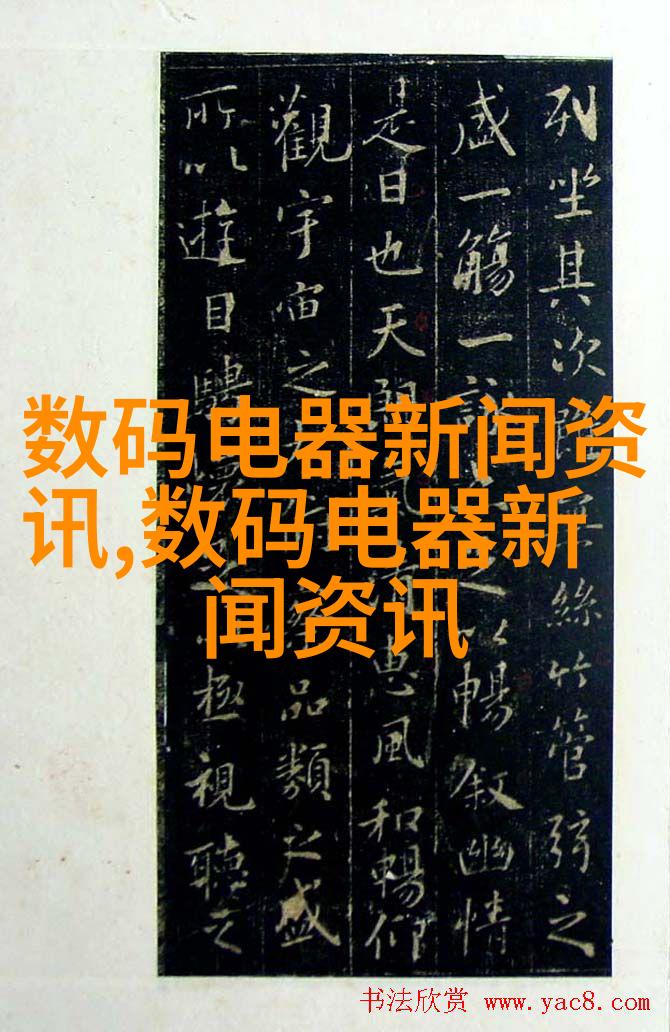 列坐其次 絲竹管弦之
盛一觴一 暢叙幽情
是日也天 惠風和暢仰
觀宇宙之 品類之盛
所以遊目 極視聽之
数码电器新闻资
讯,数码电器新
闻资讯
书法欣赏 www.yac8.com